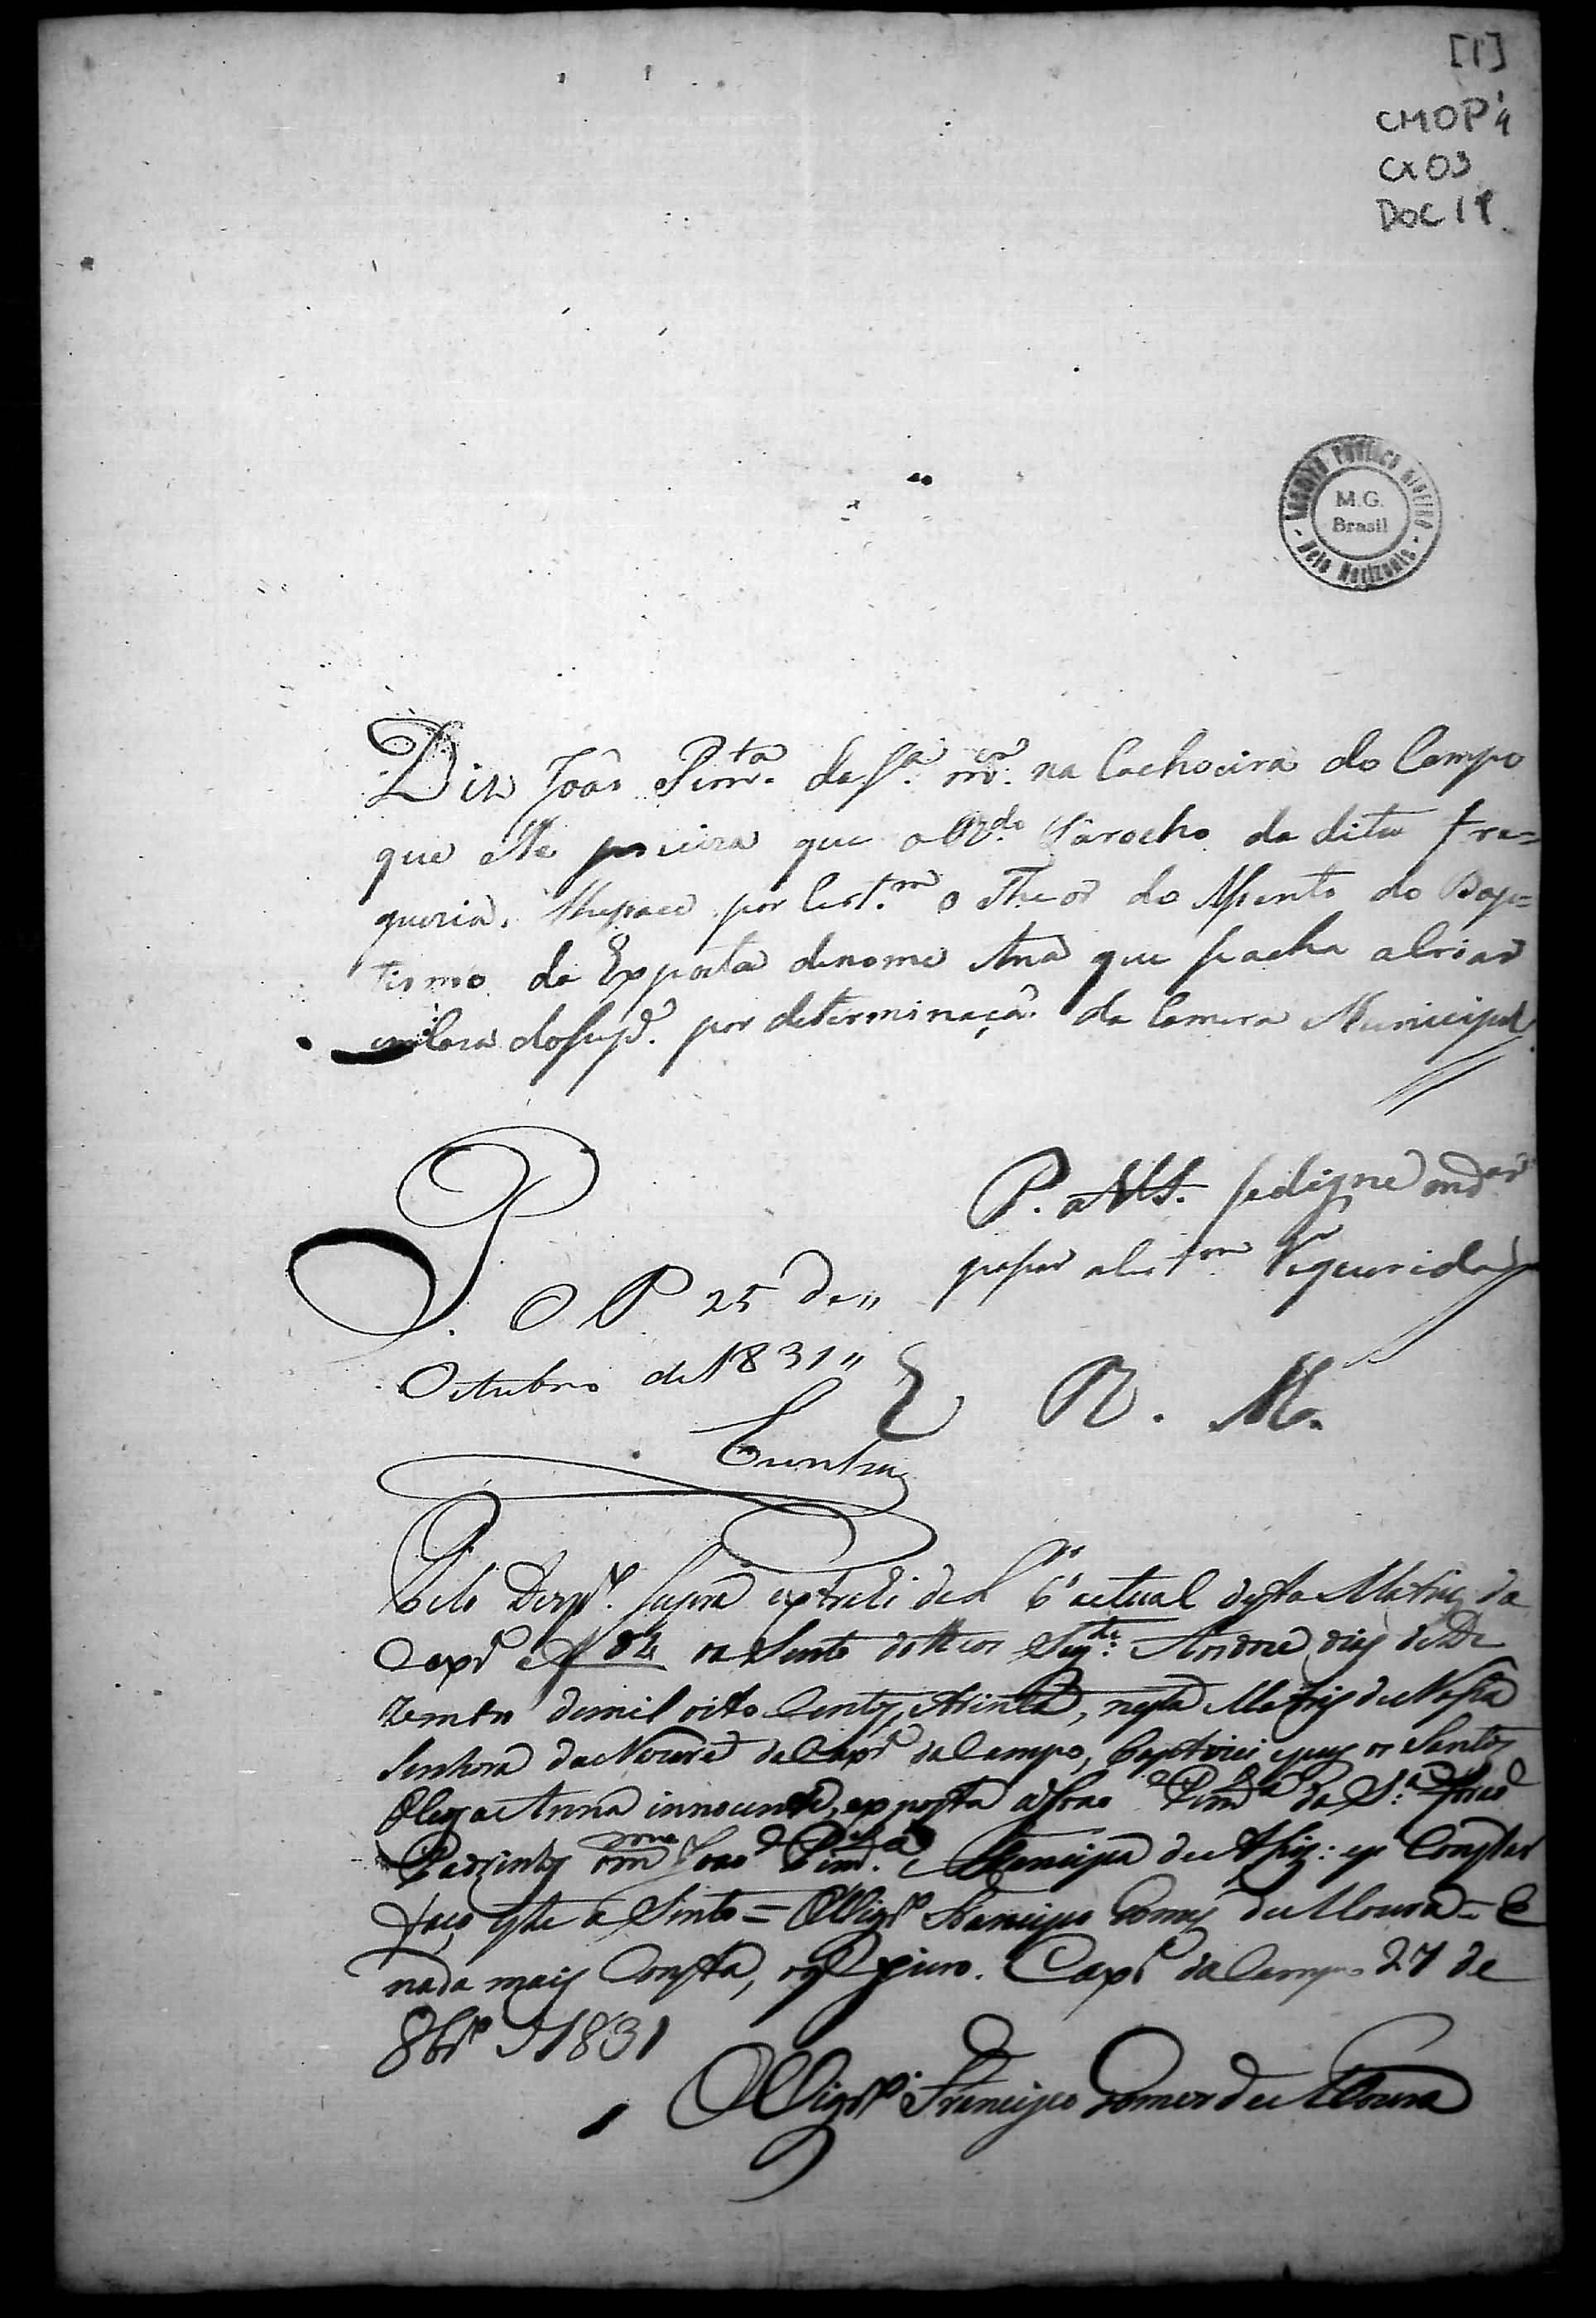 [1]
CMOP 1/4
CX 03
DOC 19
ARQUIVO PUBLICO MINEIRO
M.G.
Brasil
- Belo Horizonte -
Diz João Pim.ta da S.a m.or na Cachoeira do Campo
que elle preciza que o R.do Parocho da dita Fre=
guezia, lhe passe por Cert.m o Theor do Assento do Bap=
tismo da Exposta de nome Ana que se acha a criar
em Caza do Sup.e por determinação da Camera Municipal
P. a V.S. se digne md.ar
passar a Cert.m q.r
requerida
P. O P 25 de ,,
Octubro de 1831 ,,
E R. M.
Pelo Desp.o supra extrahi do L.o 6o actual desta Matriz da
Caxr.a e f 82 o a Sento do theor Seg.te: Aos onze dias de De
zembro de mil oito Centos, e trinta, nesta Matriz de Nossa
Senhora da Nazareth da Caxr.a do Campo, Baptizei e puz os Santos
Oleos a Anna innocente, exposta a João Pim.ta da S.a forão
Padrinhos o m.mo João Pim.ta e Francisca de Assiz: e p.a Constar
faço este a Sento = O Vigr.o Francisco Gomes de Moura = E
nada mais Consta, o q juro. Caxr.a do Campo 27 de
8br.o de 1831
O Vigr.o Francisco Gomes de Moura